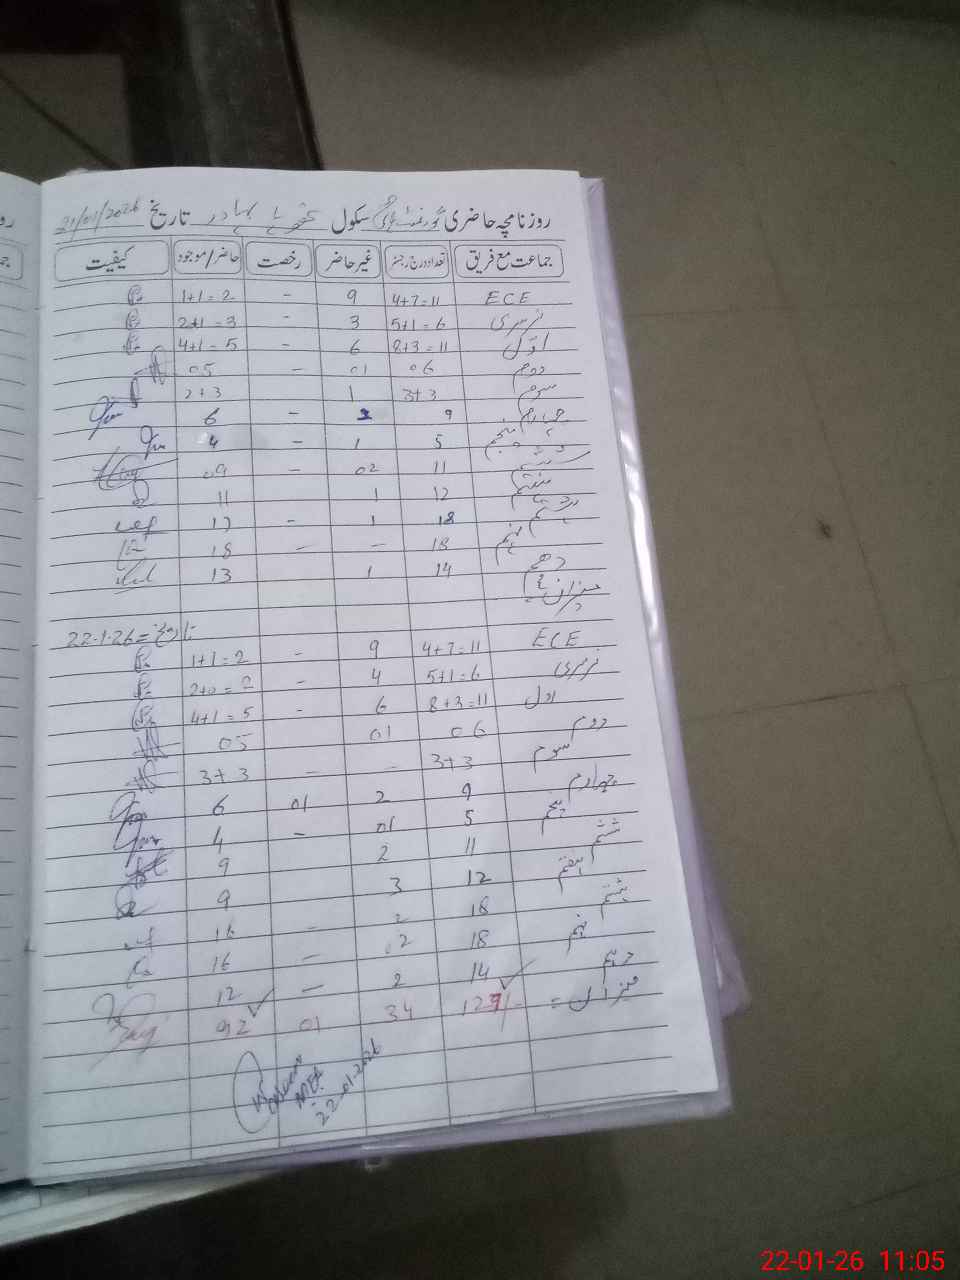 روزنامچہ حاضری گورنمنٹ سکول بہادر تاریخ 21/01/2026
جماعت مع فریق تعداد درج رجسٹر غیر حاضر رخصت حاضر/موجود کیفیت
ECE 4+7=11 9 - 1+1=2
نرسری 5+1=6 3 - 2+1=3
اوّل 8+3=11 6 - 4+1=5
دوم 06 01 - 05
سوم 3+3 1 2+3
چہارم 9 - 6
پنجم 5 1 - 4
ششم 11 02 - 09
ہفتم 12 1 11
ہشتم 18 1 - 17
نہم 18 - - 18
دہم 14 1 13
میزان =
تاریخ = 22-1-26
ECE 4+7=11 9 - 1+1=2
نرسری 5+1=6 4 - 2+0=2
اول 8+3=11 6 - 4+1=5
دوم 06 01 05
سوم 3+3 - - 3+3
چہارم 9 2 01 6
پنجم 5 01 - 4
ششم 11 2 9
ہفتم 12 3 9
ہشتم 18 2 - 16
نہم 18 02 - 16
دہم 14 2 - 12
میزان = 127 34 01 92
22-01-2026
22-01-26 11:05